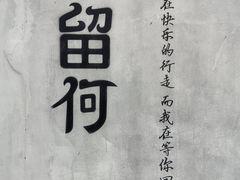 留何
在快乐的行走 而我在等你